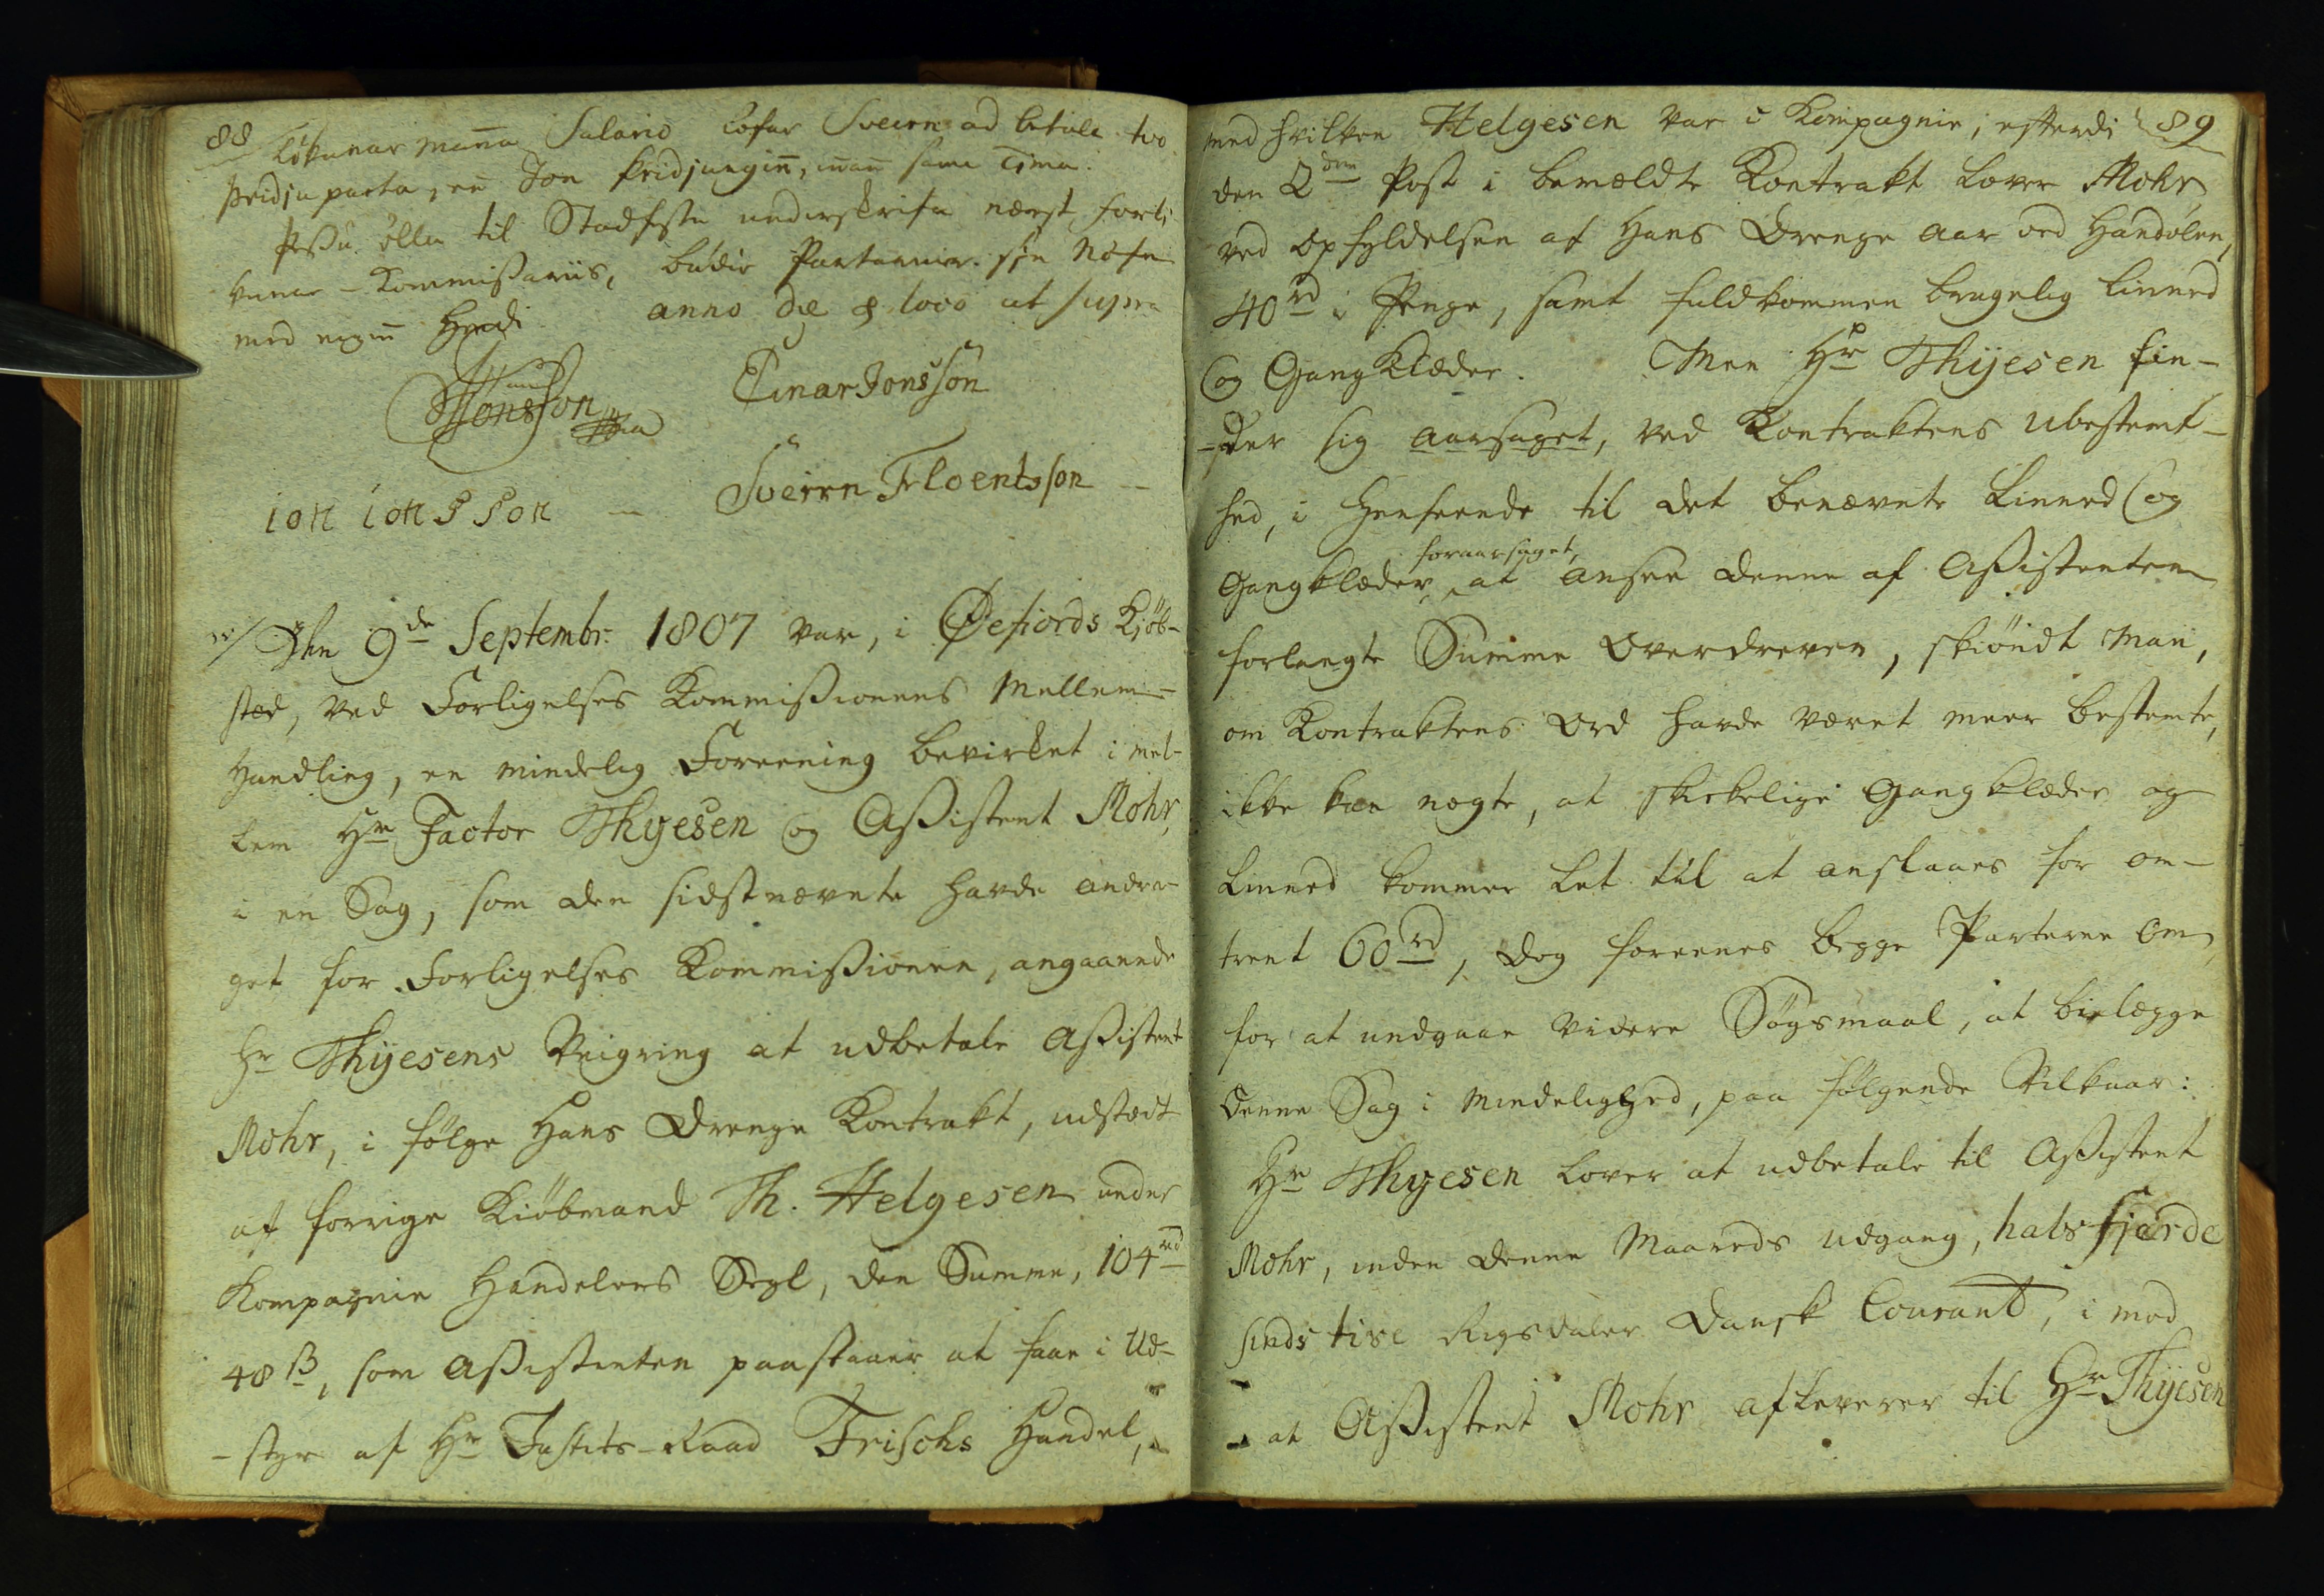 88
Tökunar manna Salario lofar Sveirn ad betala tvo
þridju parta, en Jon þridjungin, innan sama Tima.
Þessu öllu til Stadfestu underskrifa nærst forli-
kunar-Kommissariis, bádir Partarnir sin Nöfn
med eigin Hendi anno die & loco ut supra
Jonsson
Einar Jonsson
ion ionsson — Sveirn Floentsson —
Den 9de Septembr: 1807 var, i Øefiords Kjöb-
stæd, ved Forligelses Kommissionens Mellem-
Handling, en mindelig Foreening bevirket i mel-
lem Hr Factor Thyesen og Assistent Mohr,
i en Sag, som den sidstnævnte havde andra-
get for Forligelses Kommissionen, angaaende
Hr Thyesens Veigring at udbetale Assistent
Mohr, i følge Hans Drenge Kontrakt, udstædt
af forrige Kiöbmand Th. Helgesen under
Kompagnie Handelens Segl, den Summa, 104rd
48 ß, som Assistenten paastaaer at faae i Ud-
-styr af Hr Justits-Raad Frischs Handel,
89
med hvilken Helgesen var i Kompagnie; efterdi
den 2den Post i bemældte Kontrakt lover Mohr
ved Opfyldelsen af Hans Drenge Aar ved Handelen,
40rd i Penge, samt fuldkommen brugelig Linned
og Gang Klæder. Men Hr Thyesen fin-
-der sig aarsaget, ved Kontraktens Ubestemt-
hed, i Henseende til det benævnte Linned og
foraarsaget,
Gangklæder, at ansee denne af Assistenten
forlangte Summa Overdreven, skiöndt Man,
om Kontraktens Ord havde været meer bestemte,
ikke kan nægte, at skikkelige Gangklæder og
Linned kommer let til at anslaaes for om-
trent 60rd, dog foreenes begge Parterne om,
for at undgaae videre Søgsmaal, at bielægge
Denne Sag i Mindelighed, paa følgende Vilkaar:
Hr Thyesen lover at udbetale til Assistent
Mohr, inden denne Maaneds Udgang, halvfjerde
sinds tive Rigsdaler Dansk Courant, i mod
at Assistent Mohr afleverer til Hr Thyesen